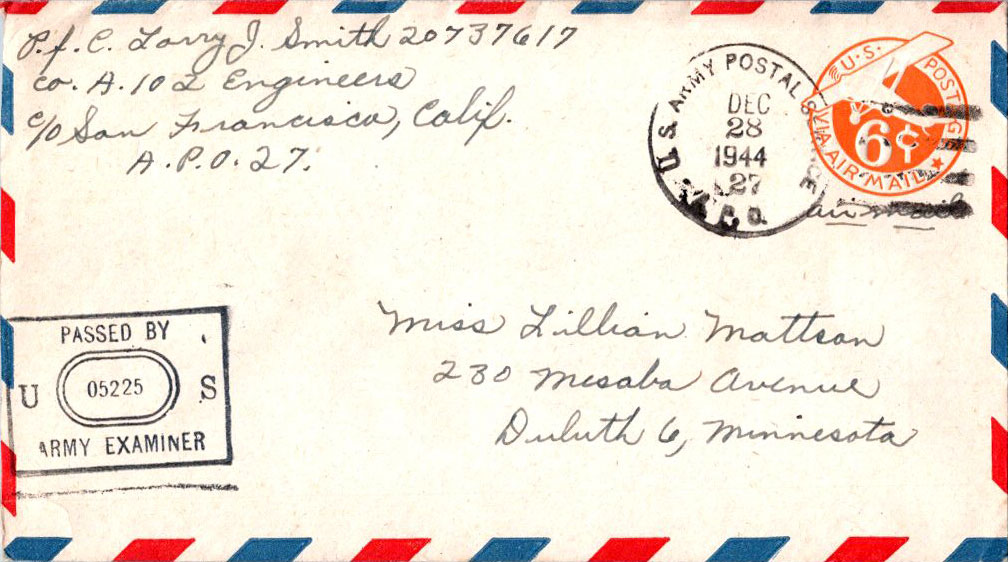 P.f.C. Larry J. Smith 20737617
Co. A. 102 Engineers
c/o San Francisco, Calif.
A.P.O. 27.
U.S. ARMY POSTAL SERVICE
DEC
28
1944
27
A.P.O.
U.S. POSTAGE
6¢
VIA AIR MAIL
air mail
PASSED BY
U 05225 S
ARMY EXAMINER
Miss Lillian Mattson
230 Mesaba Avenue
Duluth 6, Minnesota